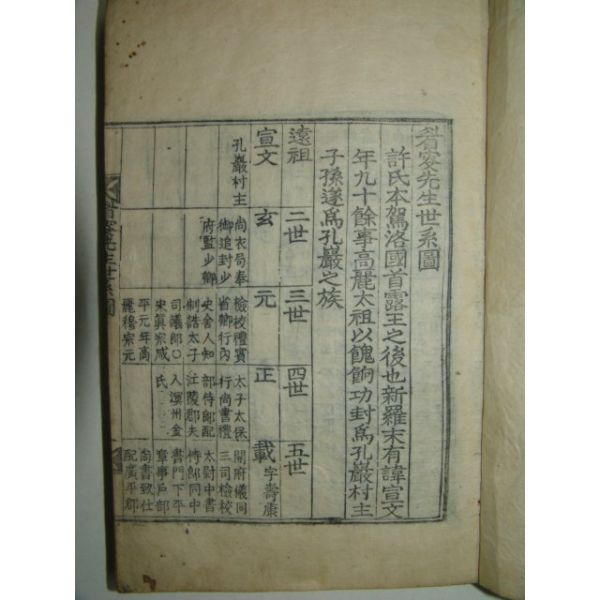 先生世系圖
許氏本駕洛國首露王之後也新羅末有諱宣文
年九十餘事高麗太祖以餽餉功封爲孔巖村主
子孫遂爲孔巖之族
遠祖
二世
三世
四世
五世
宣文
玄
元
正
載 字壽康
孔巖村主
尚衣局奉
御追封少
府監少卿
檢校禮賓
省卿行內
史舍人知
制誥太子
司議郎○
宋眞宗咸
平元年高
麗穆宗元
太子太保
行尚書禮
部侍郎配
江陵郡夫
人溟州金
氏
開府儀同
三司檢校
太尉中書
侍郎同中
書門下平
章事戶部
尚書致仕
配廣平郡
先生世系圖